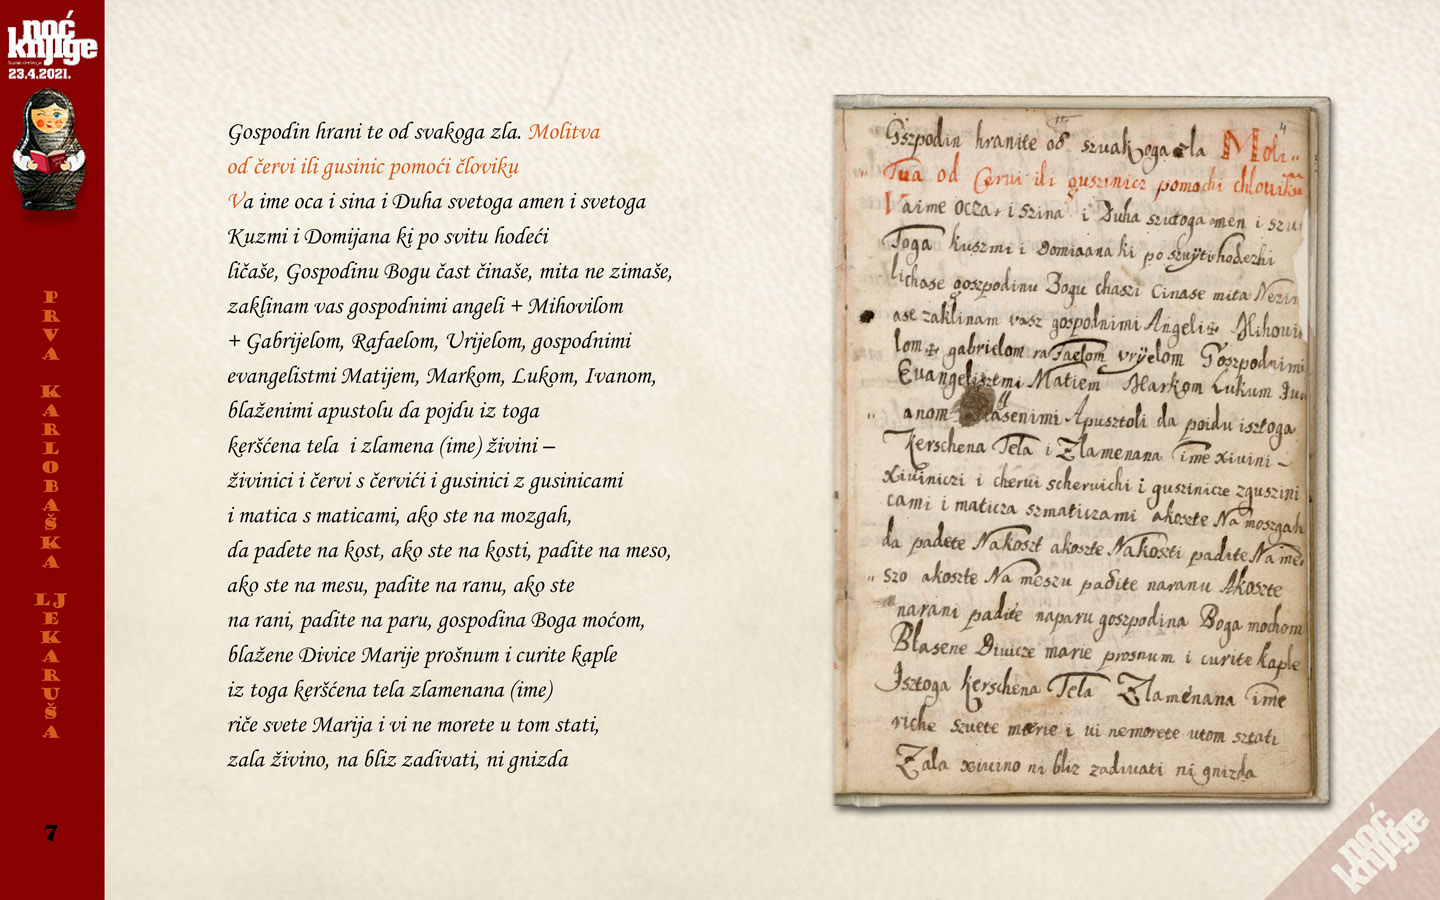 noć
knjige
23.4.2021.
PRVA KARLOBAŠKA LJEKARUŠA
7
Gospodin hrani te od svakoga zla. Molitva
od červi ili gusinic pomoći človiku
Va ime oca i sina i Duha svetoga amen i svetoga
Kuzmi i Domijana ki po svitu hodeći
ličaše, Gospodinu Bogu čast činaše, mita ne zimaše,
zaklinam vas gospodnimi angeli + Mihovilom
+ Gabrijelom, Rafaelom, Urijelom, gospodnimi
evangelistmi Matijem, Markom, Lukom, Ivanom,
blaženimi apustolu da pojdu iz toga
keršćena tela i zlamena (ime) živini –
živinici i červi s červići i gusinici z gusinicami
i matica s maticami, ako ste na mozgah,
da padete na kost, ako ste na kosti, padite na meso,
ako ste na mesu, padite na ranu, ako ste
na rani, padite na paru, gospodina Boga moćom,
blažene Divice Marije prošnum i curite kaple
iz toga keršćena tela zlamenana (ime)
riče svete Marija i vi ne morete u tom stati,
zala živino, na bliz zadivati, ni gnizda
4
Gszpodin hranite od szuakoga zla Moli-
Tua od Cerui ili guszinicz pomochi chlouiku
Vaime Ocza i szina i Duha szutoga amen i szu
Toga kuszmi i Domiaana ki po szuÿtu hodezhi
lichase goszpodinu Bogu chaszt Cinase mita Nezim
ase zaklinam vasz goszpodnimi Angeli + Mihoui
lom + gabrielom raFaelom vrÿelom Goszpodnimi
Euangelisztmi Matiem Markom Lukum Iu
anom Blasenimi Apusztoli da poidu isztoga
Kerschena Tela i Zlamenana ime xiuini -
xiuiniczi i cherui scheruichi i guszinicze zguszini
cami i maticza szmaticzami akoszte Na moszgah
da padete Nakoszt akoszte Nakoszti padite Na me
szo akoszte Na meszu padite naranu Akoszte
narani padite naparu goszpodina Boga mochom
Blasene Diuicze marie prosnum i curite kaple
Isztoga kerschena Tela Zlamenana ime
riche szuete marie i ui nemorete utom sztati
Zala xiuino ni bliz zadiuati ni gnizda
noć
knjige